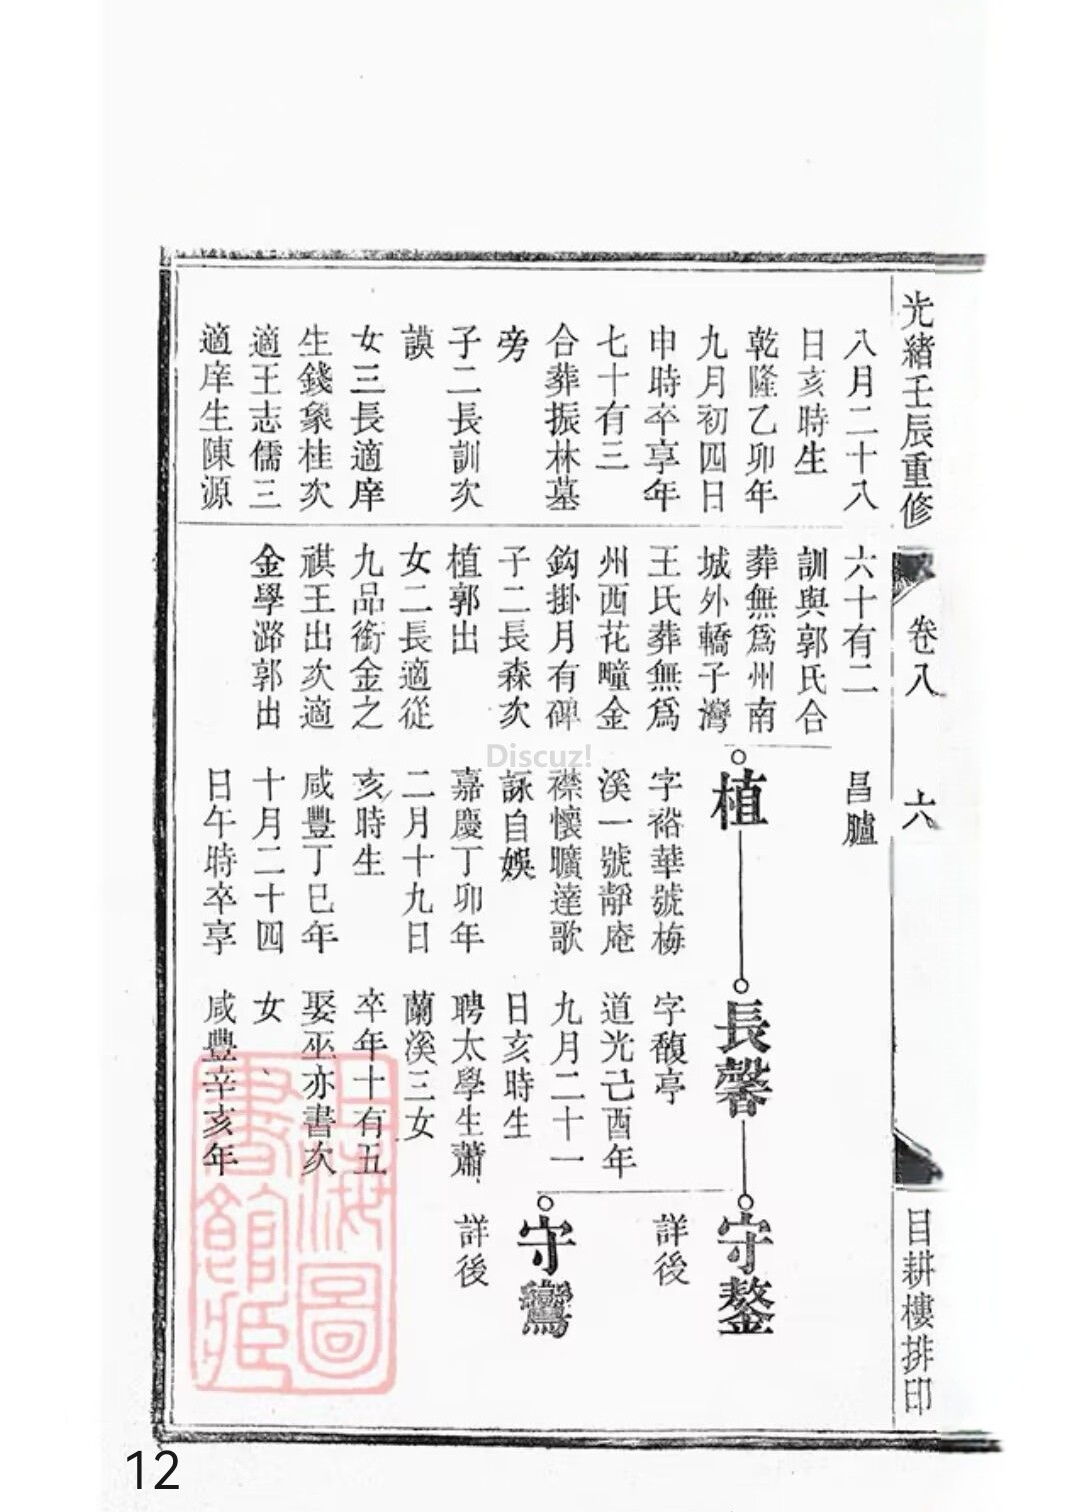 光緒壬辰重修
卷八
六
目耕樓排印
八月二十八
日亥時生
乾隆乙卯年
九月初四日
申時卒享年
七十有三
合葬振林墓
旁
子二長訓次
謨
女三長適庠
生錢象桂次
適王志儒三
適庠生陳源
六十有二
訓與郭氏合
葬無爲州南
城外轎子灣
王氏葬無爲
州西花疃金
鈎掛月有碑
子二長森次
植郭出
女二長適從
九品銜金之
祺王出次適
金學潞郭出
昌臚
植
字裕華號梅
溪一號靜庵
襟懷曠達歌
詠自娛
嘉慶丁卯年
二月十九日
亥時生
咸豐丁巳年
十月二十四
日午時卒享
長馨
字馥亭
道光己酉年
九月二十一
日亥時生
聘太學生蕭
蘭溪三女
卒年十有五
娶巫亦書次
女
咸豐辛亥年
守鏊
詳後
守鸞
詳後
上海圖
書館藏
Discuz!
12